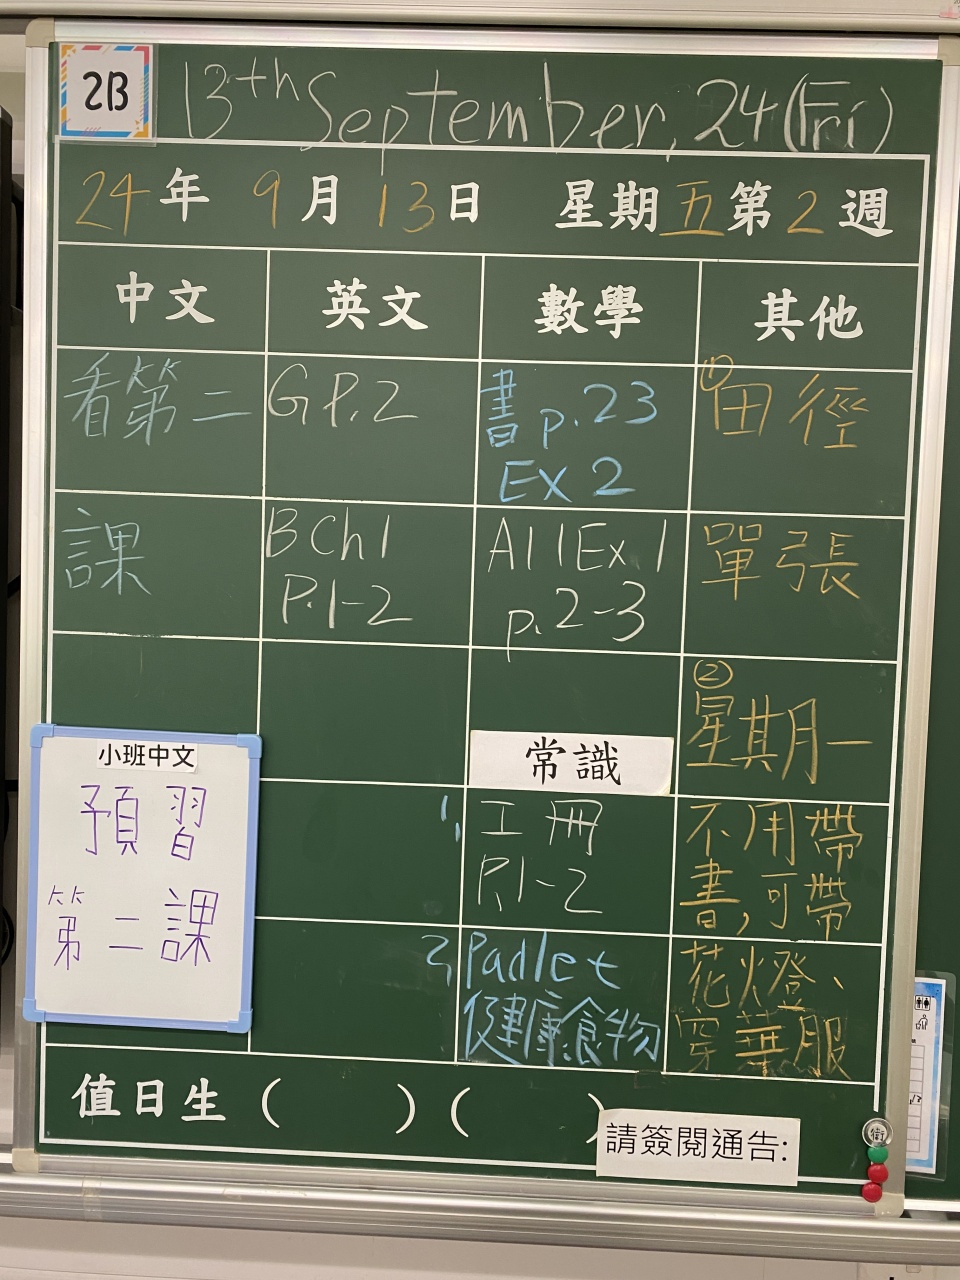 2B
13th September, 24 (Fri)
24年 9月 13日 星期五第2週
中文 英文 數學 其他
看第二
課
GP.2
B Ch1
P.1-2
書 p.23
Ex 2
A11Ex1
p.2-3
常識
1, 工冊
P.1-2
2, Padlet
健康食物
① 田徑
單張
② 星期一
不用帶
書,可帶
花燈、
穿華服
小班中文
預習
第二課
值日生 ( ) ( )
請簽閱通告: